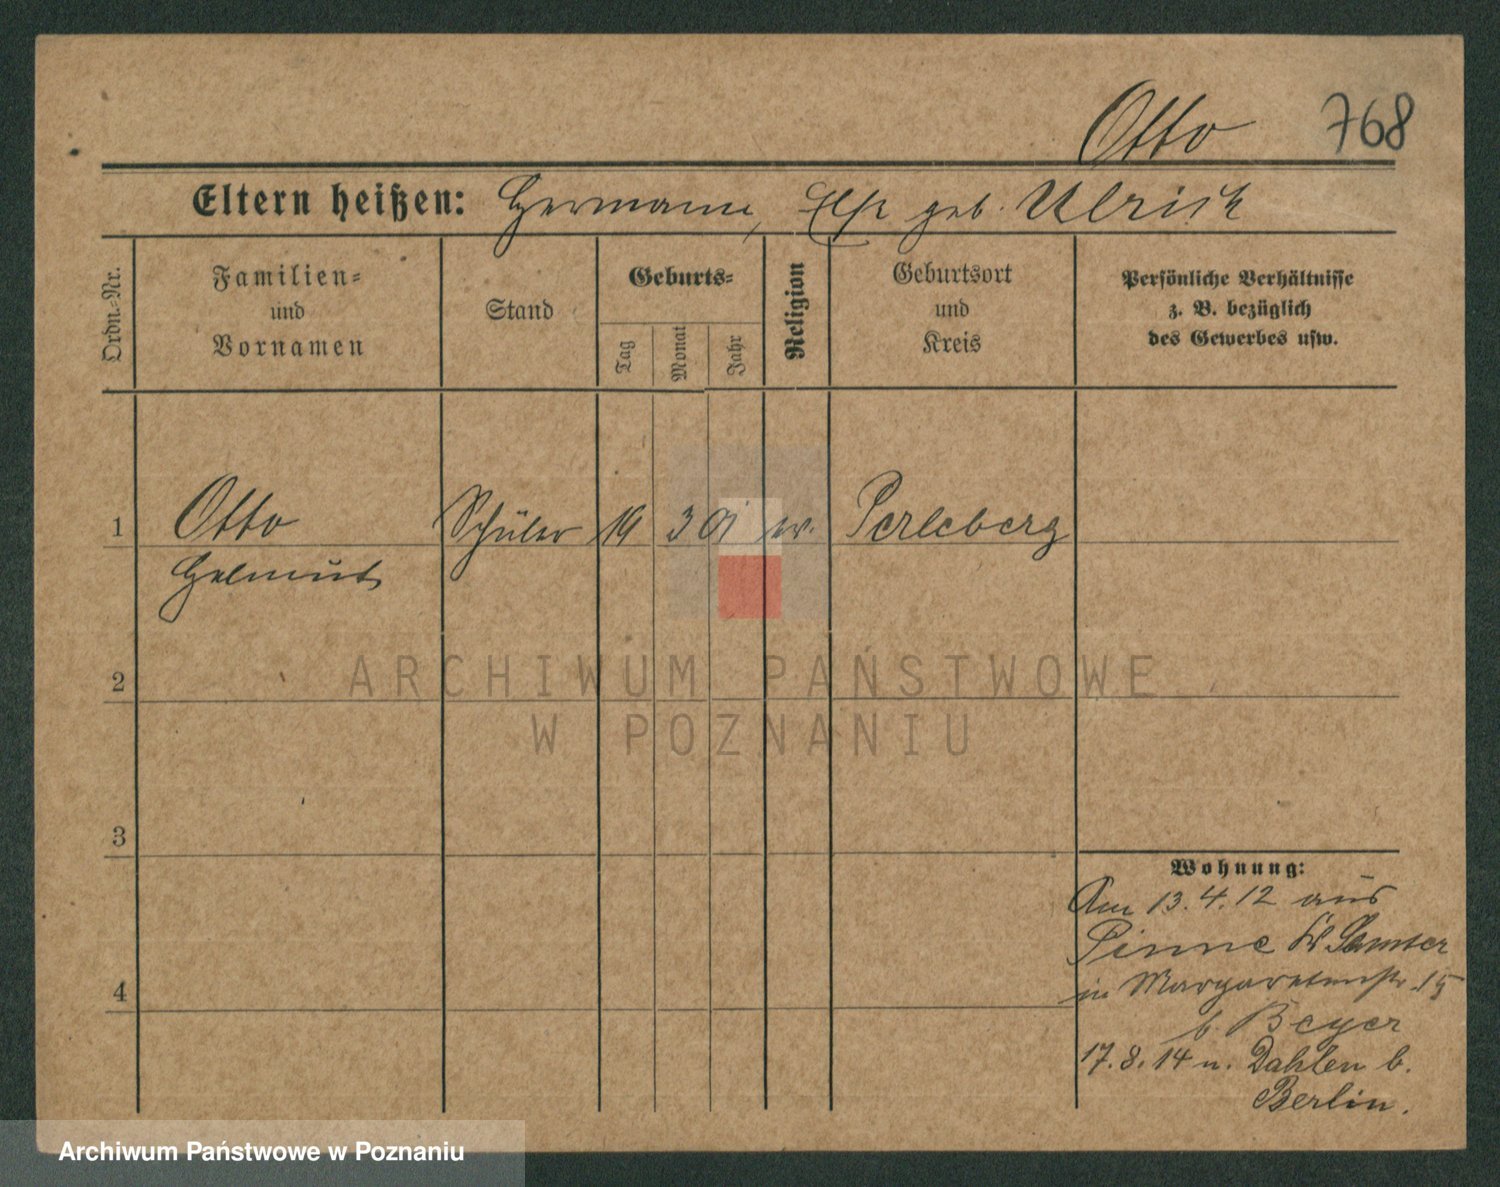 Otto 768
Eltern heißen: Hermann, Else geb. Ulrich
Ordn.-Nr.
Familien-
und
Vornamen
Stand
Geburts-
Tag
Monat
Jahr
Religion
Geburtsort
und
Kreis
Persönliche Verhältnisse
z. B. bezüglich
des Gewerbes usw.
1 Otto Schüler 19 3 01 ev. Perleberg
Helmut
2
3
4
Wohnung:
Am 13.4.12 aus
Pinne Kr Samter
in Margaretenstr. 15
b. Beyer
17.8.14 n. Dahlen b.
Berlin.
ARCHIWUM PAŃSTWOWE
W POZNANIU
Archiwum Państwowe w Poznaniu